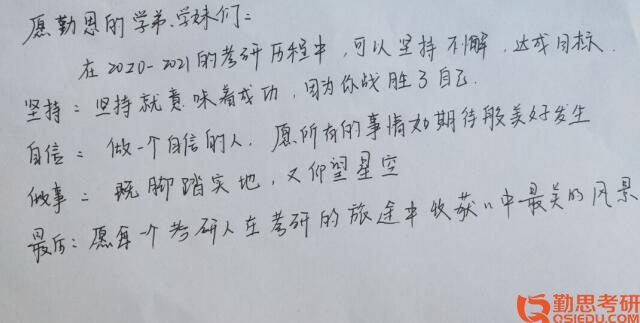 愿勤思的学弟、学妹们:
在2020-2021的考研历程中,可以坚持不懈,达成目标.
坚持:坚持就意味着成功,因为你战胜了自己.
自信:做一个自信的人.愿所有的事情如期待般美好发生
做事:既脚踏实地,又仰望星空
最后:愿每一个考研人在考研的旅途中收获心中最美的风景
勤思考研
QSIEDU.COM